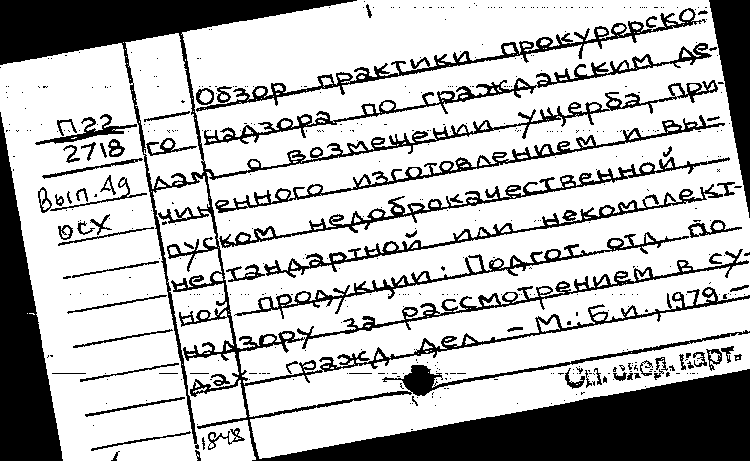 Обзор практики прокурорско-
го надзора по гражданским де-
лам о возмещении ущерба, при-
чиненного изготовлением и вы-
пуском недоброкачественной,
нестандартной или некомплект-
ной продукции: Подгот. отд. по
надзору за рассмотрением в су-
дах гражд. дел. – М.: Б.и., 1979. –
П22
2718
Вып. Ад
ЮСХ
См. след. карт.
1848